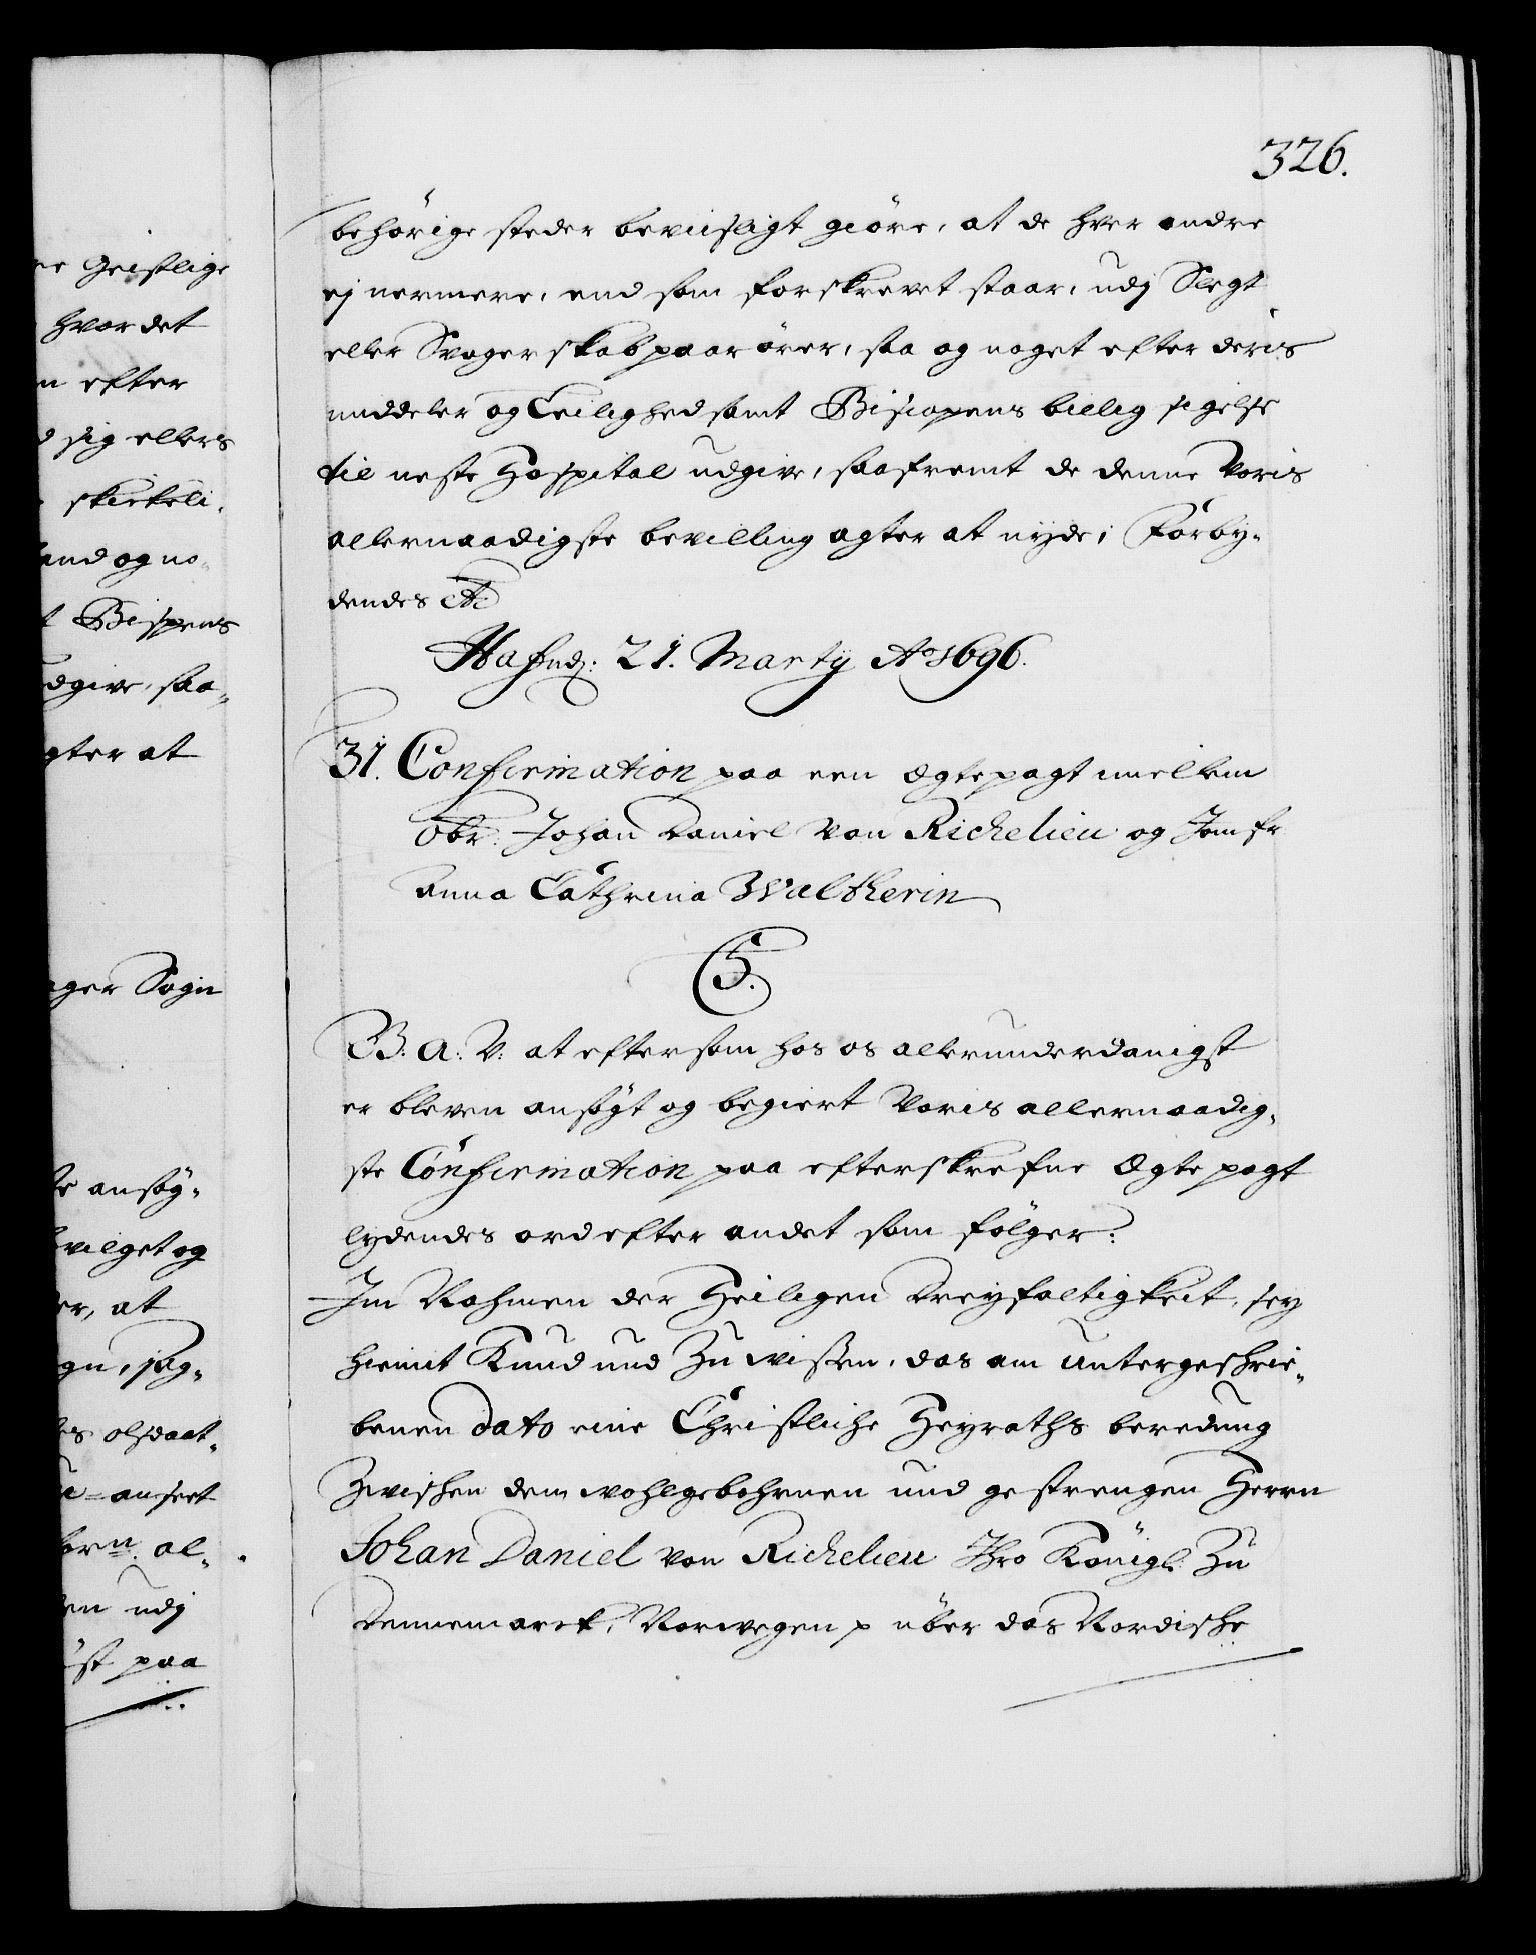 326.
behörige steder beviisligt giöre, at de hver andre
ej nermere, end som forskrevet staar, udj Slegt
eller Svogerskab paarörer, saa og noget efter deris
middeler og Leilighed samt Biscopens billig sigelse
til neste Hospital udgive, saafremt de denne Voris
allernaadigste bevilling agter at nyde; Forby-
dendes etc
Hafnæ: 21. Martij Ao 1696.
31. Confirmation paa een Egtepagt imellem
Obr. Johan Daniel Von Richelieu og Jomfr
Anna Cathrina Waltherin
C5.
B: A: V: at eftersom hos os allerunderdanigst
er bleven ansögt og begiert Voris allernaadig-
ste Confirmation paa efterskrefne Egtepagt
lydendes ord efter andet som fölger:
Im Nahmen der Heiligen Dreyfaltigkeit, sey
hiemit Kund und Zu wissen, das am untergeschrie-
benen dato eine Christliche Heyraths beredung
Zwischen dem wohlgebohrnen und gestrengen Herrn
Johan Daniel von Richelieu Ihro Königl: Zu
Dennemarck, Norwegen p über das Nordische
re Geistlige
hvor det
n efter
d sig ellers
skickeli-
and og no-
t Bispens
dgive, saa-
gter at
ager Sogn
te ansög-
vilget og
er, at
gn, sag-
es olsdaat-
anseet
orn. al-
en udj
ist paa